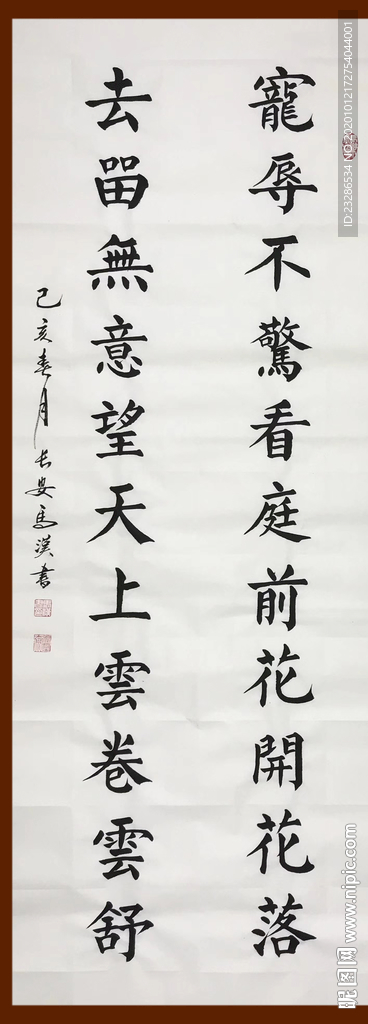 寵辱不驚看庭前花開花落
去留無意望天上雲卷雲舒
己亥春月長安馬漢書
ID:23286534 NO:20201012172754044001
昵图网 www.nipic.com